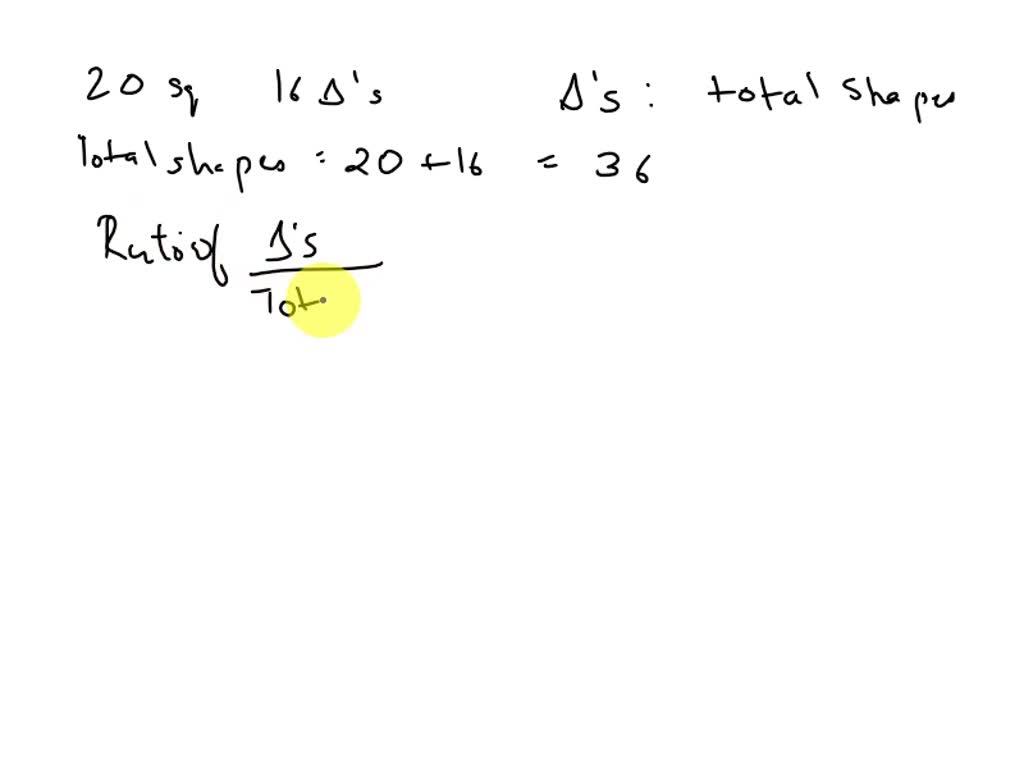 20 sq 16 Δ's Δ's : total shapes
Total shapes = 20 + 16 = 36
Ratio of Δ's
Tot